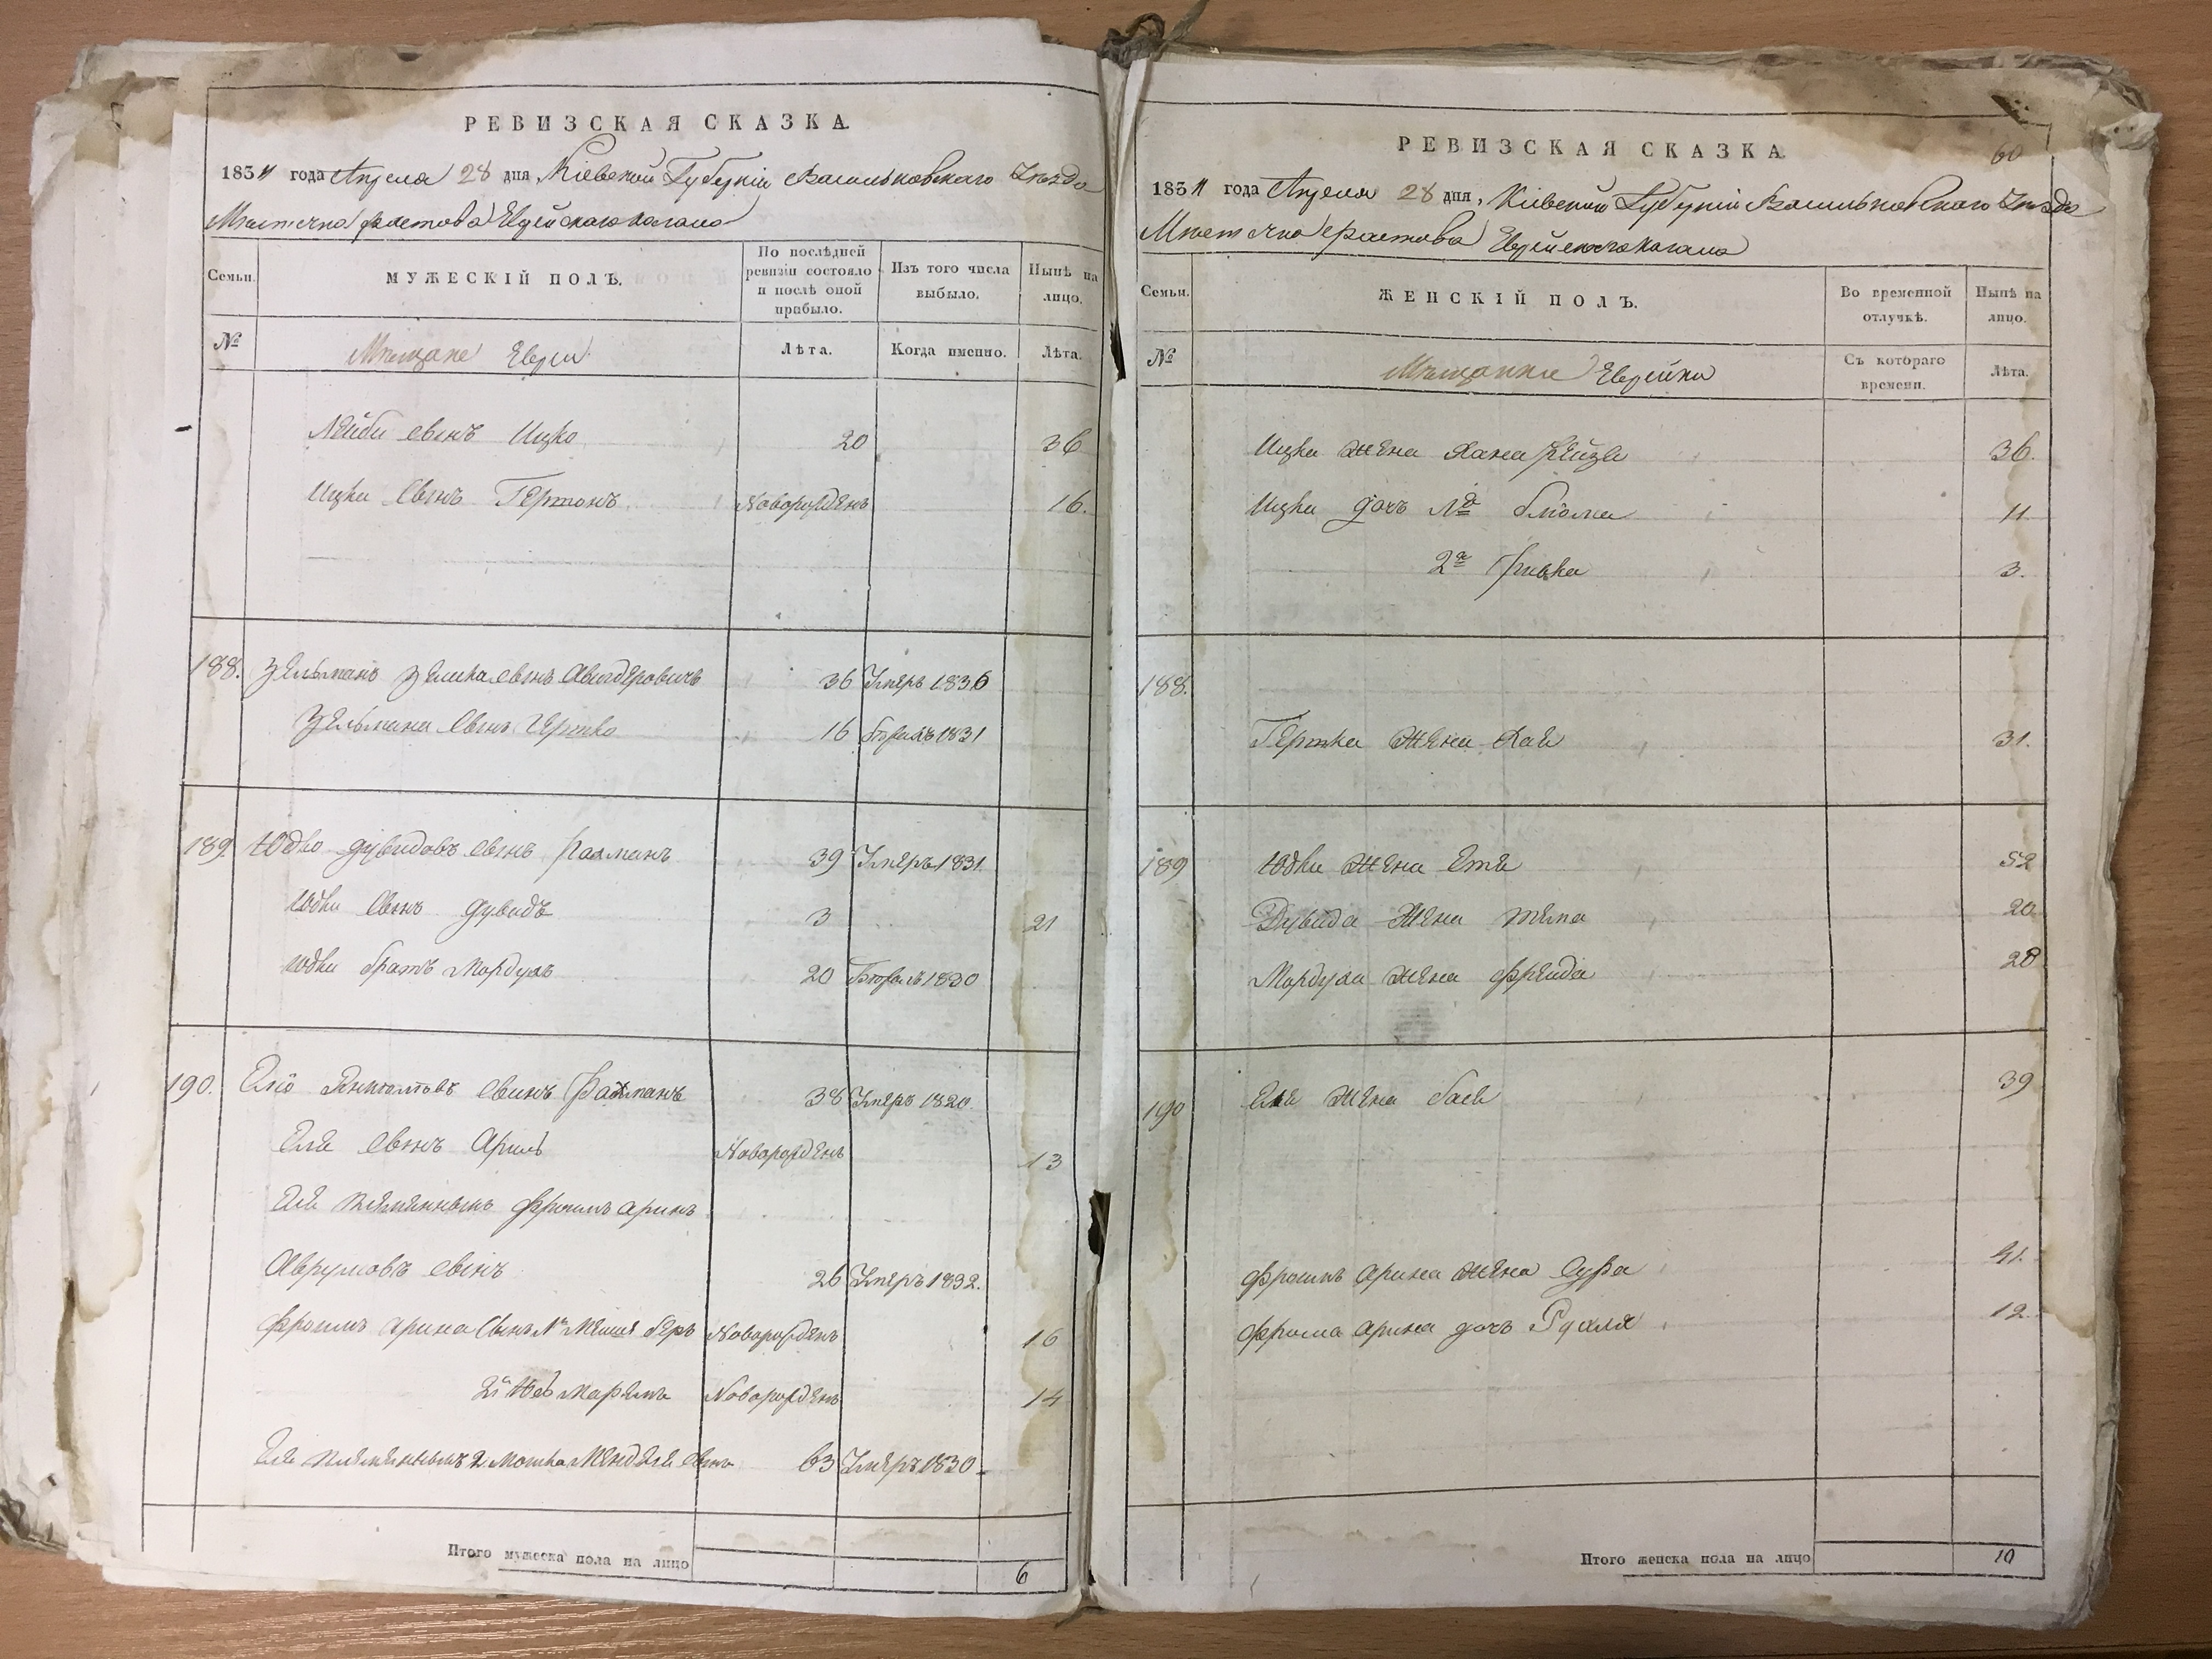 РЕВИЗСКАЯ СКАЗКА.
1834 года Апреля 28 дня Кіевской Губерніи Васильковскаго Уезда
Местечка Фастова Еврейского кагала
Семьи.
МУЖЕСКІЙ ПОЛЪ.
По последней ревизіи состояло и после оной прибыло.
Изъ того числа выбыло.
Ныне на лицо.
№
Мещане Евреи
Лета.
Когда именно.
Лета.
Лейби сынъ Ицко 20 36
Ицки сынъ Гершонъ Новорожденъ 16.
188. Зельманъ Зелика сынъ Авигдеровичъ 36 Умеръ 1836
Зельмана сынъ Гершко 16 1831
189. Юдко Дувидовъ сынъ 39 Умеръ 1831.
Юдки сынъ Дувидъ 3 21
Юдки братъ Мордухъ 20 1830
190. сынъ 38 Умеръ 1820.
Еля сынъ Арилъ Новорожденъ 13
Еля племянныкъ Фроимъ Аринъ
Аврумовъ сынъ 26 Умеръ 1832.
Фроимъ Арина сынъ 1й Беръ Новорожденъ 16
2й Новорожденъ 14
Еля племянныкъ 2 Мошко Мендиля сынъ 63 Умеръ 1830
Итого мужеска пола на лицо 6
60
РЕВИЗСКАЯ СКАЗКА
1834 года Апреля 28 дня, Кіевской Губерніи Васильковскаго Уезда
Местечка Фастова Еврейскаго кагала
Семьи.
ЖЕНСКІЙ ПОЛЪ.
Во временной отлучкѣ.
Нынѣ на лицо.
№
Мещанки Еврейки
Съ котораго времени.
Лѣта.
Ицки жена Хана Рейзя 36.
Ицки дочъ 1я Блюма 11
2я Ривка 3.
188.
Гершка жена Хая 31.
189 Юдки жена Етя 52
Дувида жена 20
Мордуха жена Фрейда 28
190 Еля жена Бася 39
Фроимъ Арина жена Сура 41.
Фроима Арина дочъ Рухля 12
Итого женска пола на лицо 10